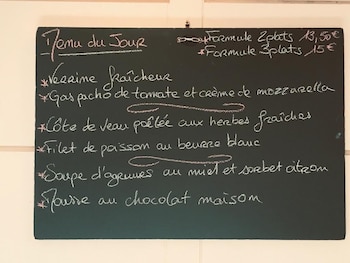 Menu du Jour
Formule 2 plats 13,50€
*Formule 3 plats 15€
*Verrine fraîcheur
*Gaspacho de tomate et crème de mozzarella
*Côte de veau poêlée aux herbes fraîches
*Filet de poisson au beurre blanc
*Soupe d'agrumes au miel et sorbet citron
*Mousse au chocolat maison